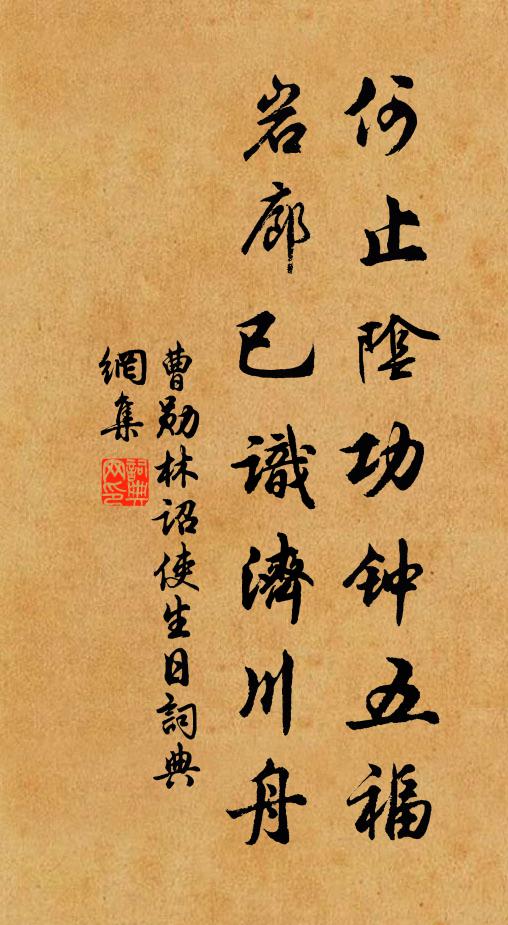 何止陰功钟五福
岩廊已識濟川舟
曹勛林詔使生日詞典
網集
詞典
网印